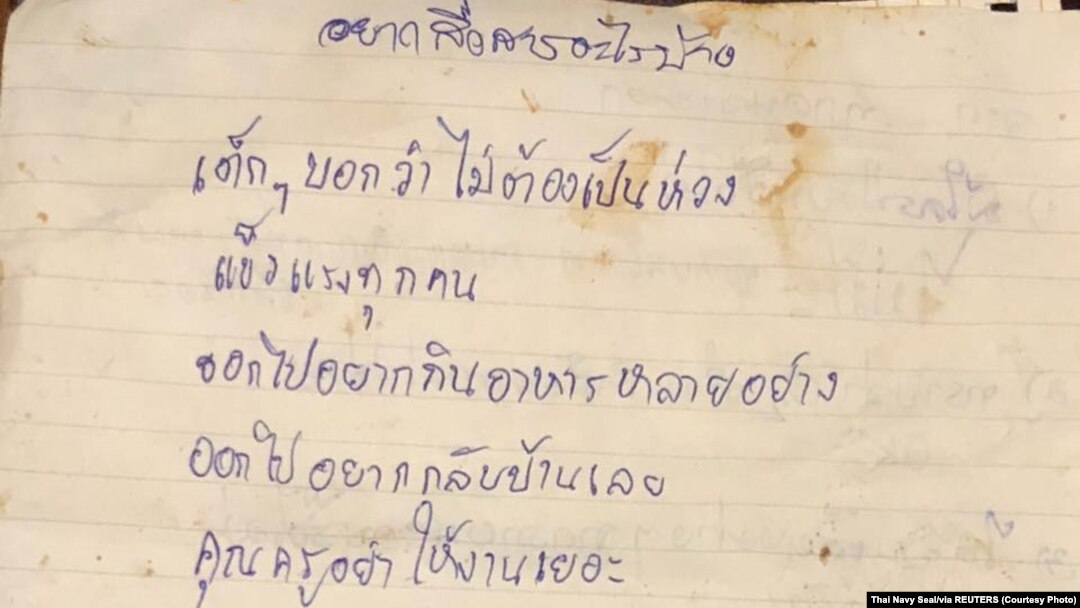 อยากสื่อสารอะไรบ้าง
เด็กๆ บอกว่า ไม่ต้องเป็นห่วง
แข็งแรงทุกคน
ออกไปอยากกินอาหารหลายอย่าง
ออกไปอยากกลับบ้านเลย
คุณครูอย่าให้งานเยอะ
Thai Navy Seal/via REUTERS (Courtesy Photo)